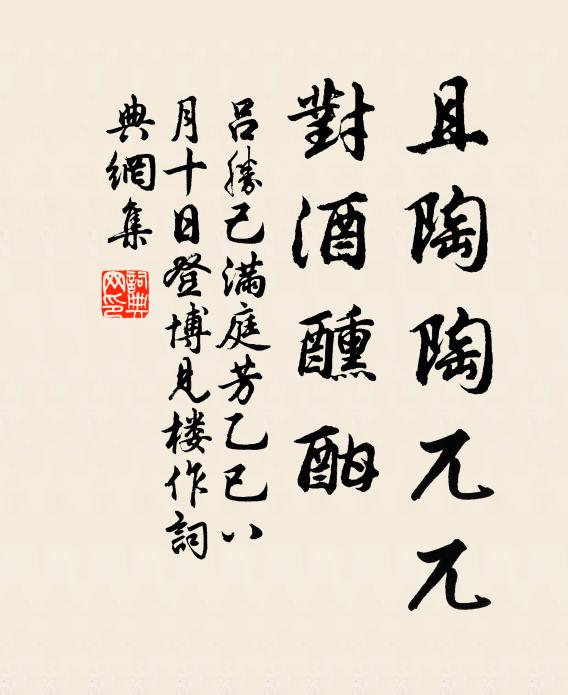 且陶陶兀兀
對酒醺酣
呂勝己滿庭芳乙巳八
月十日登博見楼作詞
典網集
詞典网印